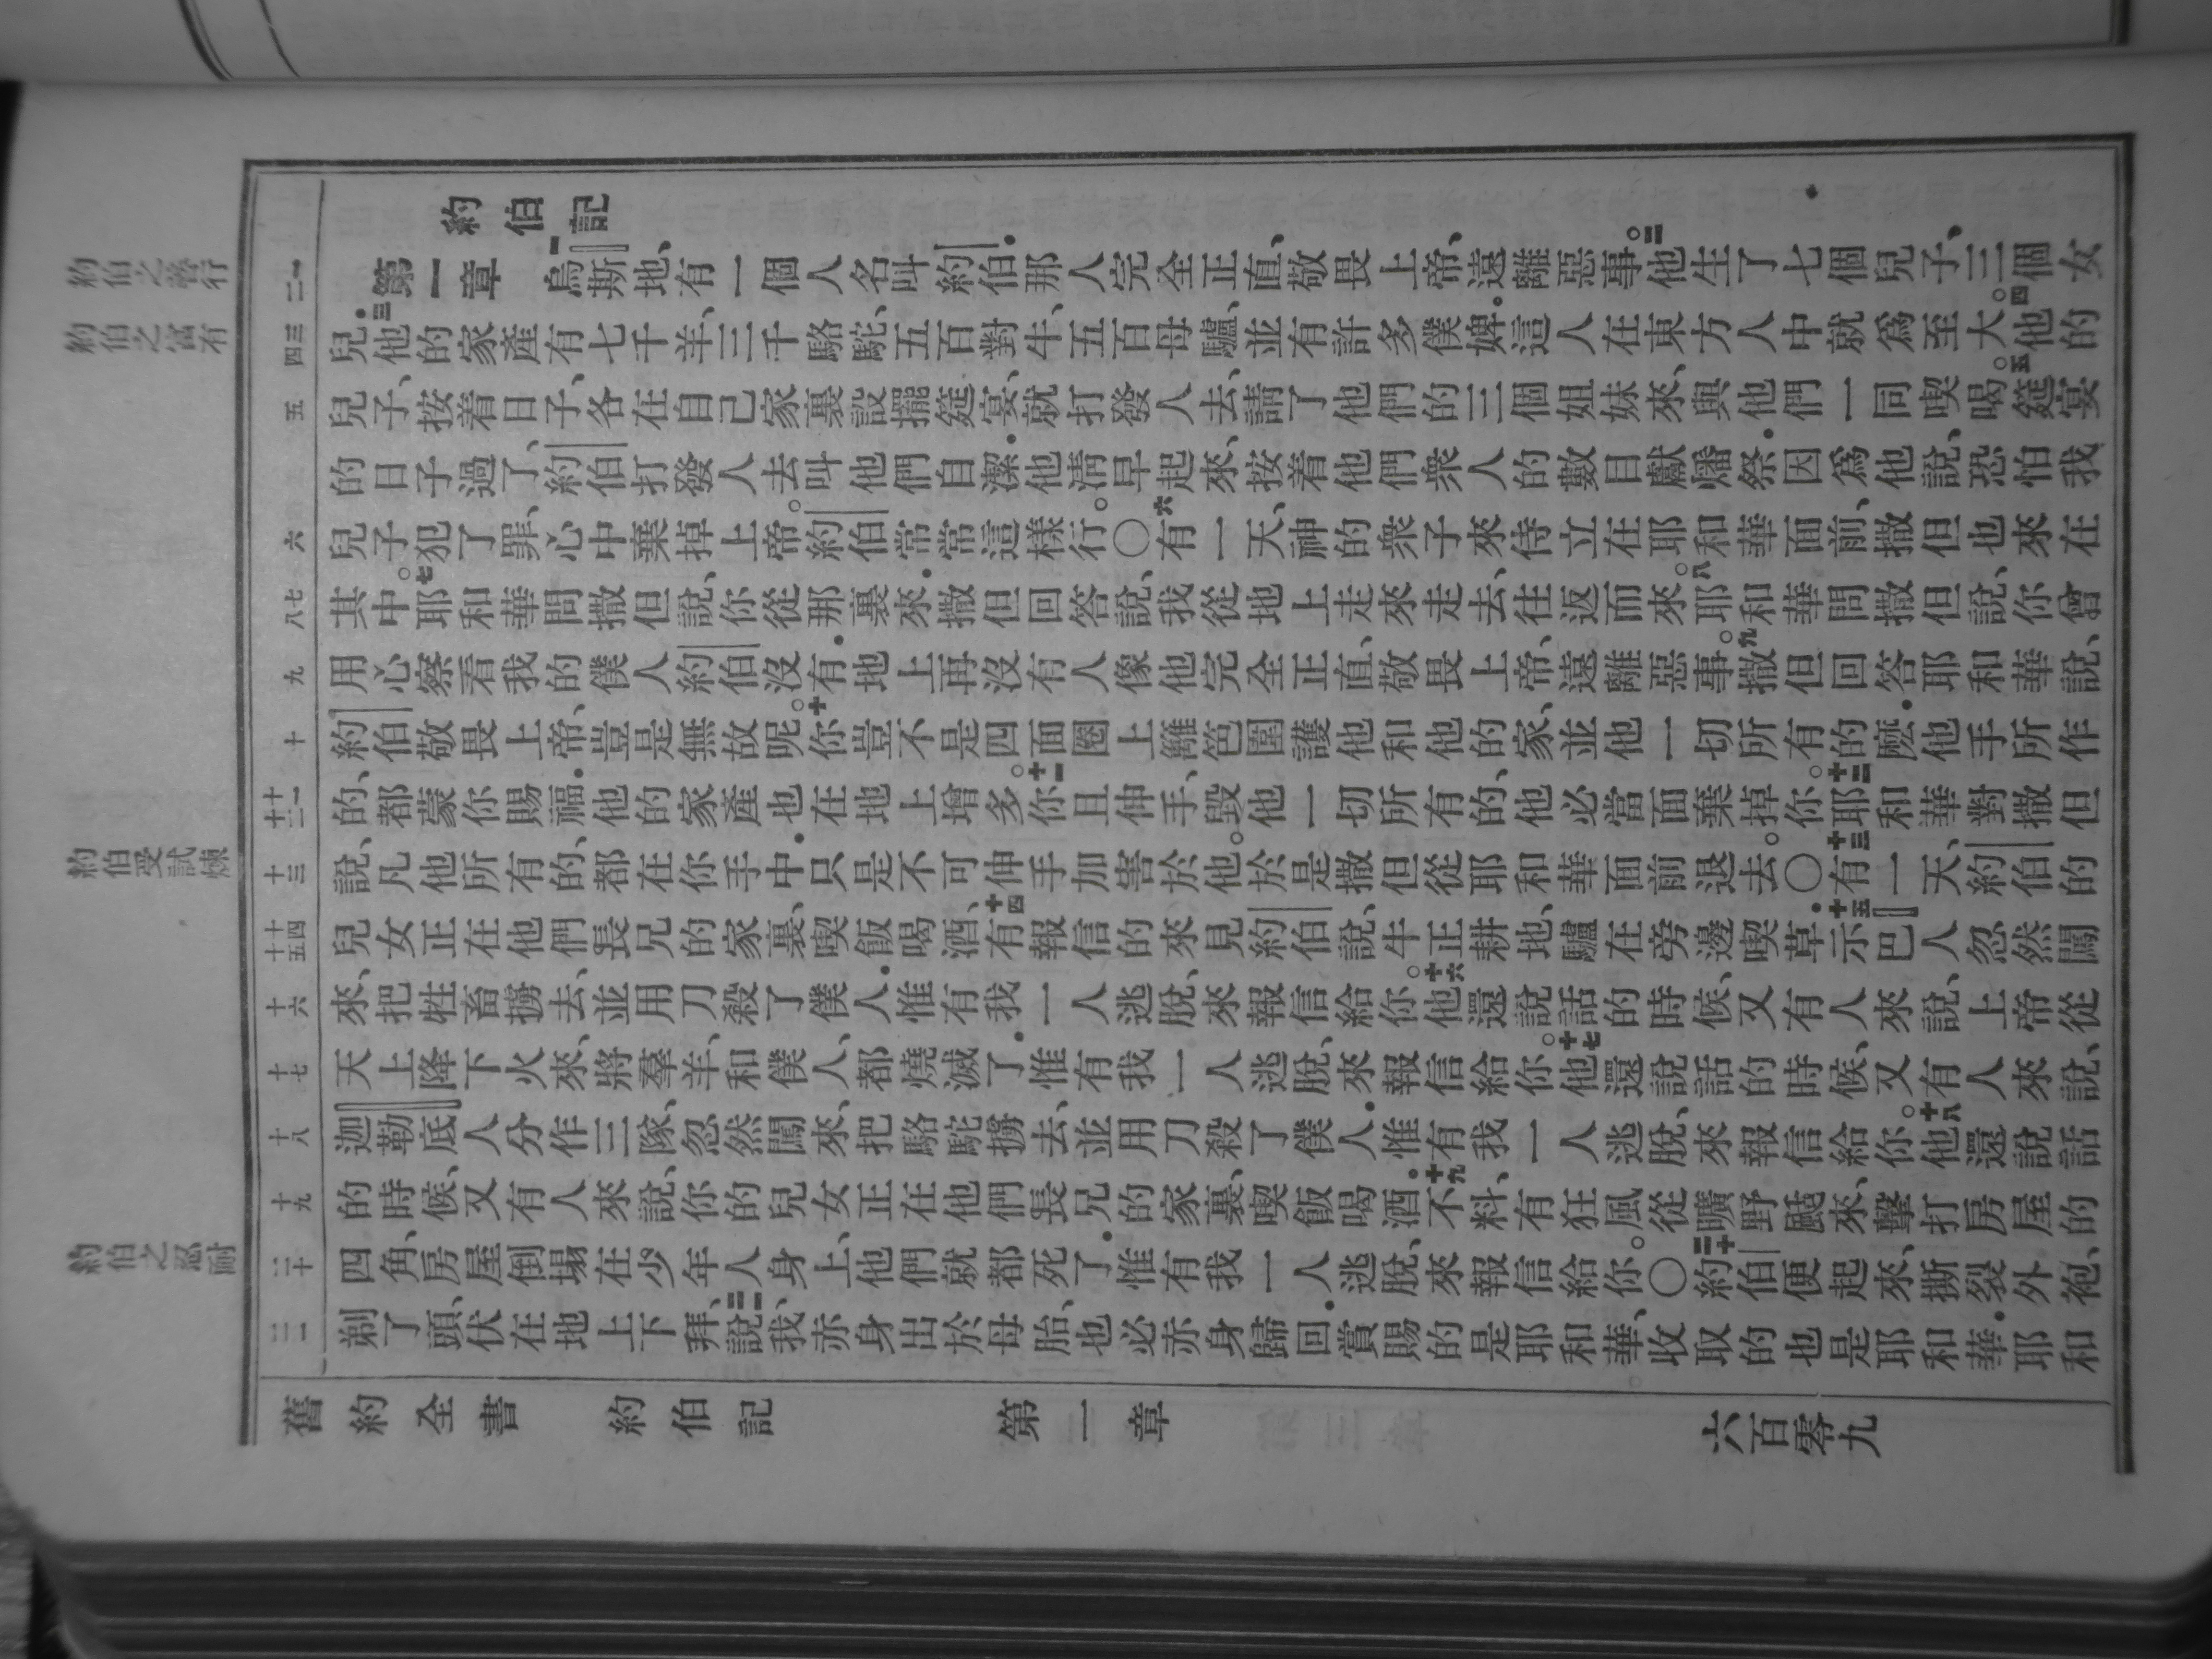 約伯記
第一章　一烏斯地、有一個人名叫約伯．那人完全正直、敬畏上帝、遠離惡事。二他生了七個兒子、三個女
兒．三他的家產有七千羊、三千駱駝、五百對牛、五百母驢、並有許多僕婢．這人在東方人中就爲至大。四他的
兒子、按着日子、各在自己家裏設擺筵宴、就打發人去、請了他們的三個姐妹來、與他們一同喫喝。五筵宴
的日子過了、約伯打發人去叫他們自潔．他清早起來、按着他們衆人的數目獻燔祭．因爲他說、恐怕我
兒子犯了罪、心中棄掉上帝。約伯常常這樣行。〇六有一天、神的衆子來侍立在耶和華面前、撒但也來在
其中。七耶和華問撒但說、你從那裏來．撒但回答說、我從地上走來走去、往返而來。八耶和華問撒但說、你曾
用心察看我的僕人約伯沒有．地上再沒有人像他完全正直、敬畏上帝、遠離惡事。九撒但回答耶和華說、
約伯敬畏上帝、豈是無故呢。十你豈不是四面圈上籬笆圍護他和他的家、並他一切所有的麽．他手所作
的、都蒙你賜福．他的家產也在地上增多。十一你且伸手、毀他一切所有的、他必當面棄掉你。十二耶和華對撒但
說、凡他所有的、都在你手中．只是不可伸手加害於他。於是撒但從耶和華面前退去。〇十三有一天、約伯的
兒女正在他們長兄的家裏、喫飯喝酒、十四有報信的來見約伯說、牛正耕地、驢在旁邊喫草．十五示巴人忽然闖
來、把牲畜擄去、並用刀殺了僕人．惟有我一人逃脫、來報信給你。十六他還說話的時候、又有人來說、上帝從
天上降下火來、將羣羊、和僕人、都燒滅了．惟有我一人逃脫、來報信給你。十七他還說話的時候、又有人來說、
迦勒底人分作三隊、忽然闖來、把駱駝擄去、並用刀殺了僕人．惟有我一人逃脫、來報信給你。十八他還說話
的時候、又有人來說、你的兒女正在他們長兄的家裏、喫飯喝酒．十九不料、有狂風從曠野颳來、擊打房屋的
四角、房屋倒塌在少年人身上、他們就都死了．惟有我一人逃脫、來報信給你。〇二十約伯便起來、撕裂外袍、
剃了頭、伏在地上下拜、二一說、我赤身出於母胎、也必赤身歸回．賞賜的是耶和華、收取的也是耶和華．耶和
舊約全書　約伯記　第一章　六百零九
約伯之善行
約伯之富有
約伯受試煉
約伯之忍耐
一
二
三
四
五
六
七
八
九
十
十一
十二
十三
十四
十五
十六
十七
十八
十九
二十
二一